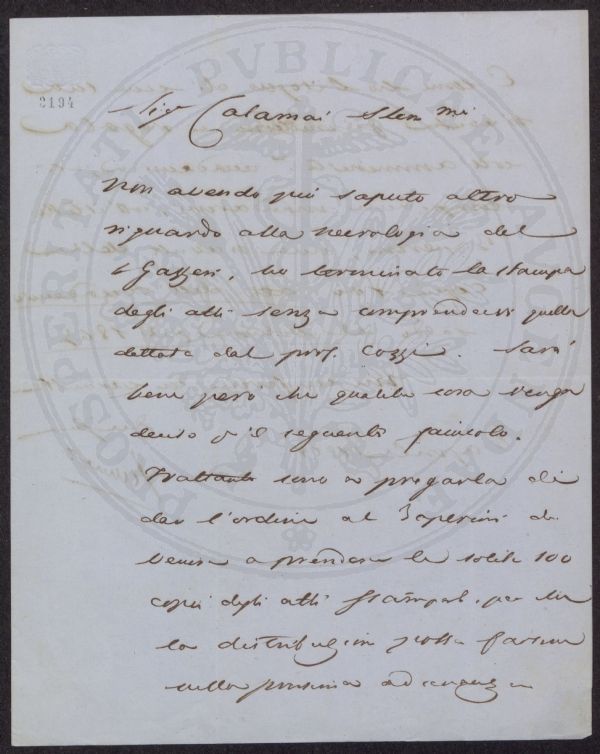 PROSPERITATI PUBLICAE AUGENDAE
2194
Sigr Calamai Stim mo
Non avendo più saputo altro
riguardo alla necrologia del
Gazzeri, ho terminato la stampa
degli atti senza comprendervi quella
dettata dal prof. Cozzi. Sarà
bene però che qualche cosa venga
detto il seguente fascicolo.
Frattanto sono a pregarla di
dar l'ordine al
venire a prendere le solite 100
copie degli atti stampati, per
la distribuzione possa farsene
nella prossima adunanza